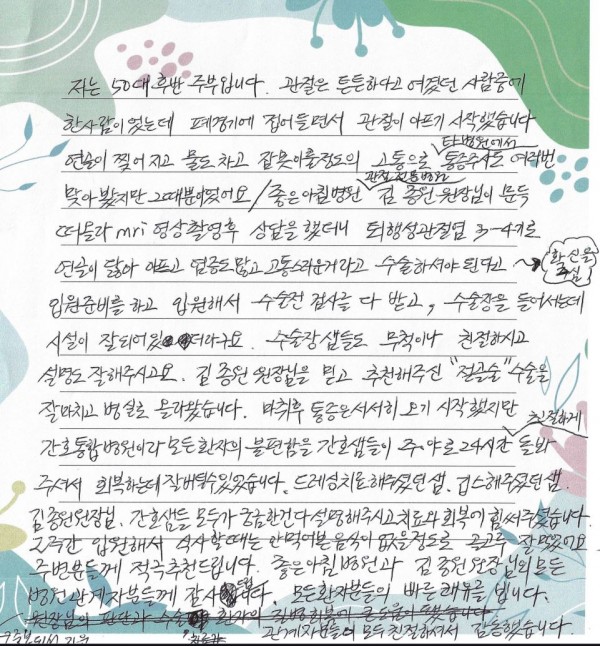 저는 50대 후반 주부입니다. 관절은 튼튼하다고 여겼던 사람중에
한사람이었는데 폐경기에 접어들면서 관절이 아프기 시작했습니다
타병원에서
연골이 찢어지고 물도 차고 잠못이룰정도의 고통으로 통증주사도 여러번
관절전문병원
맞아 봤지만 그때뿐이었어요/좋은아침병원 김종원 원장님이 문득
떠올라 mri 영상촬영후 상담을 했더니 퇴행성관절염 3~4기로
연골이 닳아 아프고 염증도많고 고통스러운거라고 수술하셔야 된다고 확신을 주심
입원준비를 하고 입원해서 수술전 검사를 다 받고, 수술장을 들어서는데
시설이 잘되어있더라구요. 수술장 샘들도 무척이나 친절하시고
설명도 잘해주시고요. 김종원 원장님을 믿고 추천해주신 "절골술" 수술을
잘마치고 병실로 올라왔습니다. 마취후 통증은서서히 오기 시작했지만
친절하게
간호통합병원이라 모든환자의 불편함을 간호샘들이 주.야로 24시간 돌봐
주셔서 회복하는데 잘버틸수있었습니다. 드레싱치료해주셨던샘. 깁스해주셨던샘.
김종원원장님. 간호샘들 모두가 궁금한건다 설명해주시고치료와 회복에 힘써주셨습니다.
2주간 입원해서 식사할때는 안먹어본음식이 없을정도로 골고루 잘먹었어요
주변분들께 적극추천드립니다. 좋은아침병원과 김종원원장님외모든
병원관계자분들께 감사드립니다. 모든환자분들의 빠른쾌유를 빕니다.
원장님의 판단과 수술 환자의 질병회복에 큰도움이 됐습니다
관계자분들이 모두친절하셔서 감동했습니다.